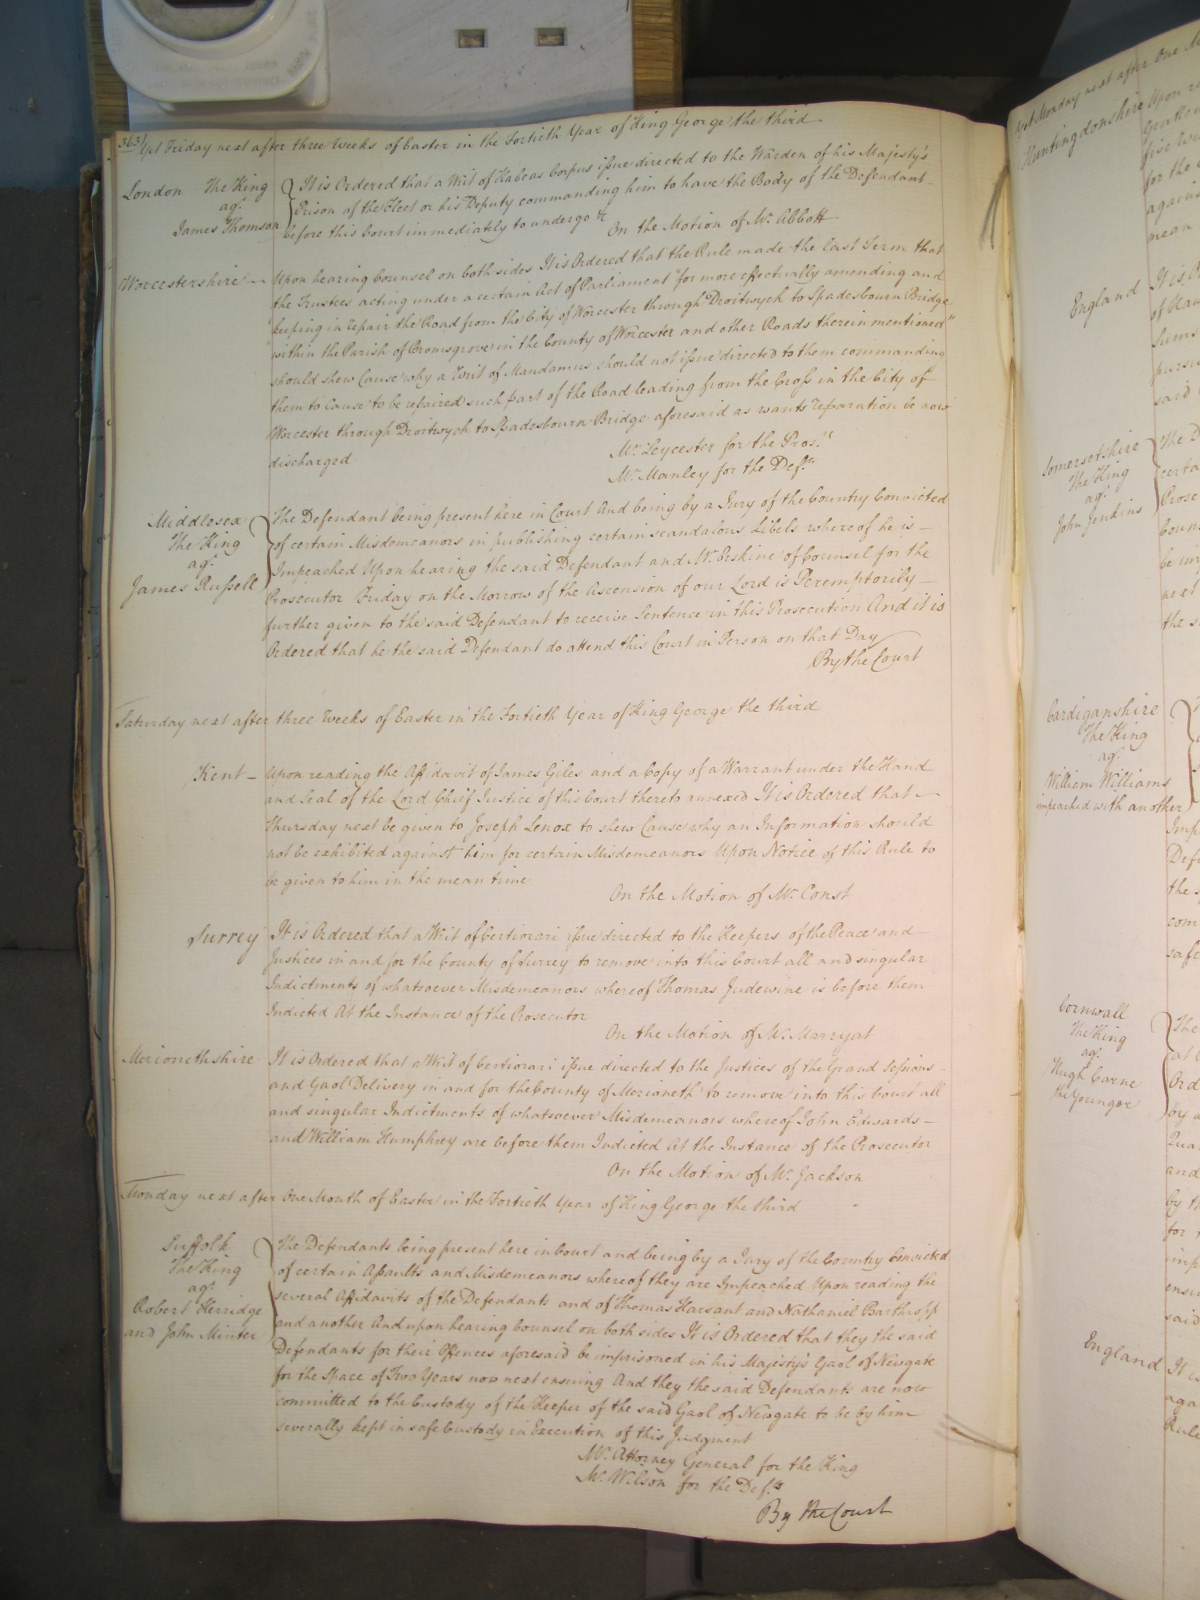 363 Yet Friday next after three Weeks of Easter in the Fortieth Year of King George the third
London The King
agt
James Thomson
It is Ordered that a Writ of Habeas Corpus issue directed to the Warden of his Majesty's
Prison of the Fleet or his Deputy commanding him to have the Body of the Defendant
before this Court immediately to undergo &c
On the Motion of Mr. Abbott
Worcestershire
Upon hearing Counsel on both sides It is Ordered that the Rule made the last Term that
the Trustees acting under a certain Act of Parliament "for more effectually amending and
"keeping in repair the Road from the City of Worcester through Droitwych to Spadesbourn Bridge
"within the Parish of Bromsgrove in the County of Worcester and other Roads therein mentioned"
should shew Cause why a Writ of Mandamus should not issue directed to them commanding
them to cause to be repaired such part of the Road leading from the Cross in the City of
Worcester through Droitwych to Spadesbourn Bridge aforesaid as wants reparation be now
discharged
Mr. Leycester for the Pros.rs
Mr. Manley for the Def.ts
Middlesex
The King
agt
James Russell
The Defendant being present here in Court And being by a Jury of the Country Convicted
of certain Misdemeanors in publishing certain scandalous Libels whereof he is
Impeached Upon hearing the said Defendant and Mr. Erskine of Counsel for the
Prosecutor Friday on the Morrow of the Ascension of our Lord is Peremptorily
further given to the said Defendant to receive Sentence in this Prosecution And it is
Ordered that he the said Defendant do attend this Court in Person on that Day
By the Court
Saturday next after three Weeks of Easter in the Fortieth Year of King George the third
Kent
Upon reading the Affidavit of James Giles and a Copy of a Warrant under the Hand
and Seal of the Lord Chief Justice of this Court thereto annexed It is Ordered that
Thursday next be given to Joseph Lenox to shew Cause why an Information should
not be exhibited against him for certain Misdemeanors Upon Notice of this Rule to
be given to him in the mean time
On the Motion of Mr. Const
Surrey
It is Ordered that a Writ of Certiorari issue directed to the Keepers of the Peace and
Justices in and for the County of Surrey to remove into this Court all and singular
Indictments of whatsoever Misdemeanors whereof Thomas Judewine is before them
Indicted At the Instance of the Prosecutor
On the Motion of Mr. Marryat
Merionethshire
It is Ordered that a Writ of Certiorari issue directed to the Justices of the Grand Sessions
and Gaol Delivery in and for the County of Merioneth to remove into this Court all
and singular Indictments of whatsoever Misdemeanors whereof John Edwards
and William Humphrey are before them Indicted At the Instance of the Prosecutor
On the Motion of Mr. Jackson
Monday next after One Month of Easter in the Fortieth Year of King George the third
Suffolk
The King
agt
Robert Herridge
and John Minter
The Defendants being present here in Court and being by a Jury of the Country Convicted
of certain Assaults and Misdemeanors whereof they are Impeached Upon reading the
several Affidavits of the Defendants and of Thomas Harsant and Nathaniel Barthropp
and another And upon hearing Counsel on both sides It is Ordered that they the said
Defendants for their Offences aforesaid be imprisoned in his Majesty's Gaol of Newgate
for the Space of Two Years now next ensuing And they the said Defendants are now
committed to the Custody of the Keeper of the said Gaol of Newgate to be by him
severally kept in safe Custody in Execution of this Judgment
Mr. Attorney General for the King
Mr. Wilson for the Def.ts
By the Court
Yet Monday next after One
Huntingdonshire Upon
Gentlem
for the
against
mean
England
It is O
of
Sums
pursu
said
Somersetshire
The King
agt
John Jenkins
The D
certa
Prose
boun
be
next
the s
Cardiganshire
The King
agt
William Williams
impeached with another
Imp
Defe
the
com
safe
Cornwall
The King
agt
Hugh Carne
the Younger
The
at
Ord
by
Qua
and
by th
for
imp
ensu
said
England
It is
aga
Rule